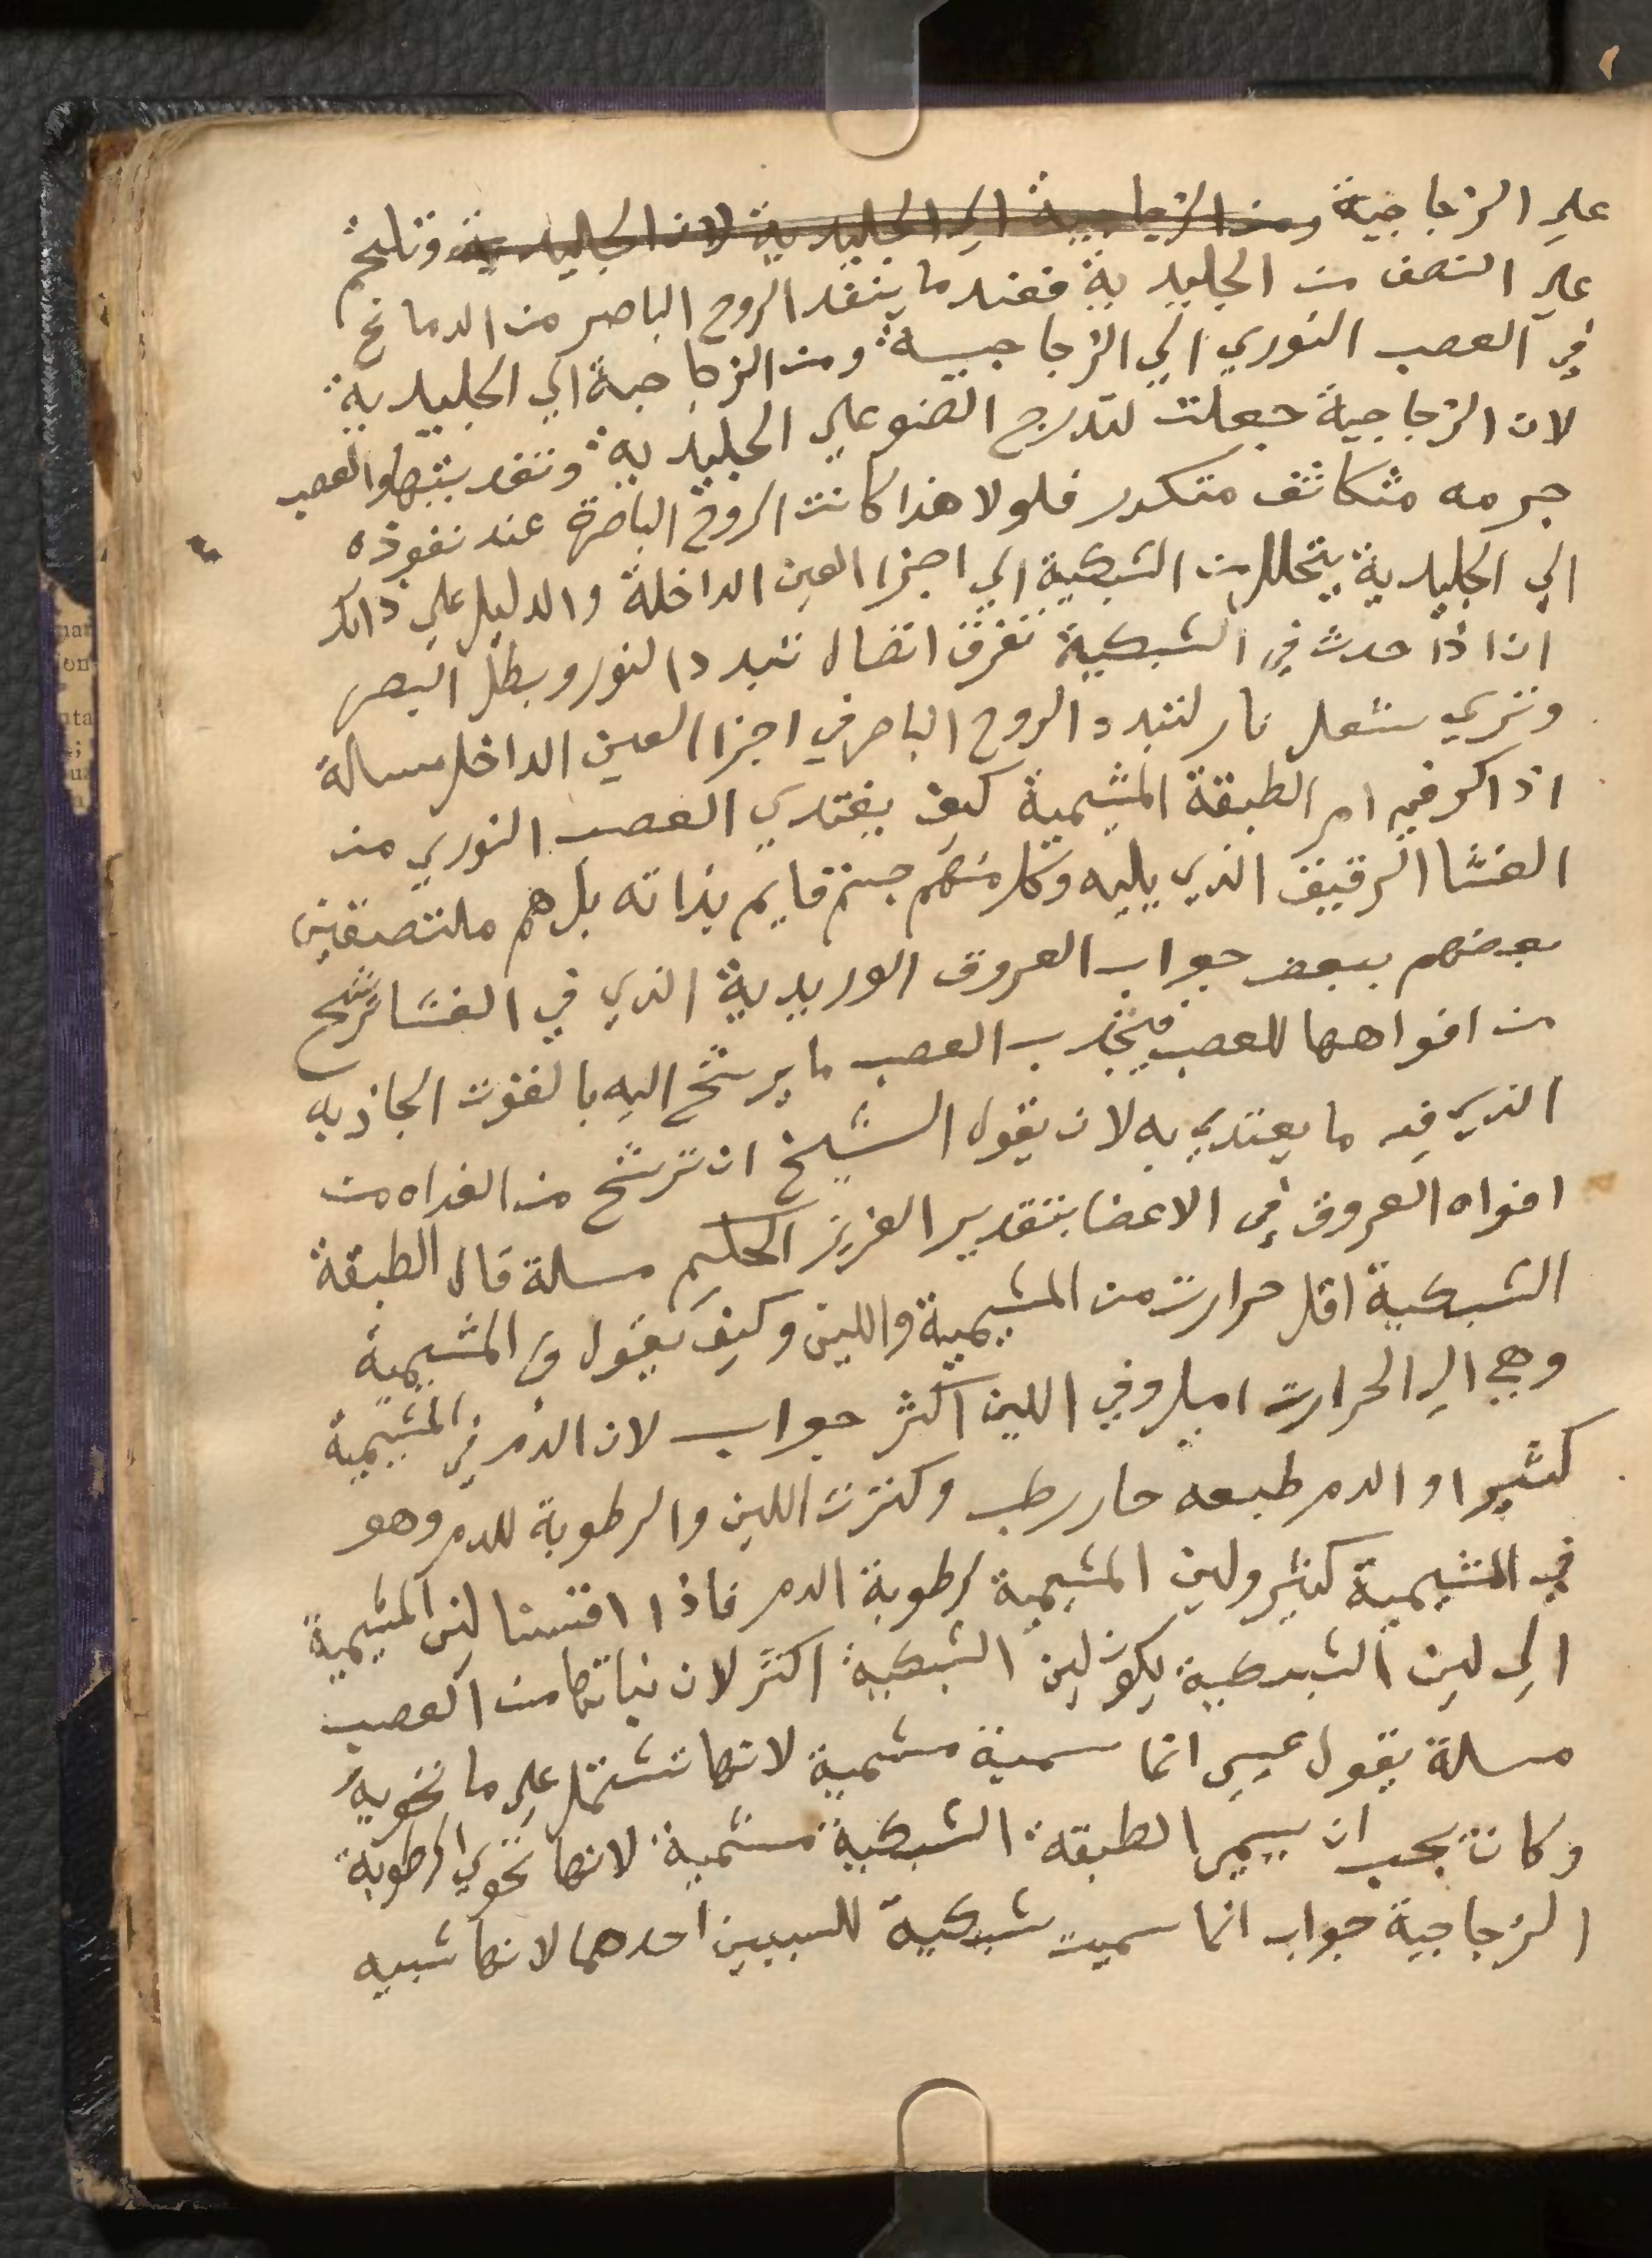 علي الزجاجية ومن الزجاجية الي الجليدية لان الجليدية وتلتحم
علي النصف من الجليدية فعند ما ينفد الروح الباصر من الدماغ
في العصب النوري الي الزجاجيية ومن الزجاجية الي الجليدية
لان الزجاجية جعلت لتدرج الضو علي الجليدية وتنفد والعصب
جرمه متكاثف متكدر فلولا هذا كانت الروح الباصرة عند نفوذه
الي الجليدية يتحلل من الشبكية الي اجزا العين الداخلة والدليل علي ذالك
ان اذا حدث في الشبكية تفرق اتصال تبدد النور وبطل البصر
وتري شعل نار لتبدد الروح الباصر في اجزا العين الداخل مسالة
اذاكر في امر الطبقة المشيمية كيف يغتدي العصب النوري من
الغشا الرقيق الذي يليه وكل منهم جسم قايم بذاته بل هم ملتصقين
بعضهم ببعض جواب العروق الوريدية الذي في الغشا ترشح
من افواهها للعصب فيجذب العصب ما يرشح اليه بالقوت الجاذبه
الذي فيه ما يغتدي به لان يقول الشيخ ان ترشح من الغداه من
افواه العروق في الاعضا بتقدير العزيز الحكيم مسلة قال الطبقة
الشبكية اقل حرارت من المشيمية واللين وكيف يقول في المشيمية
وهي الي الحرارت اميل وفي اللين اكثر جواب لان الدم في المشيمية
كثيرا والدم طبعه حار رطب وكثرت اللين والرطوبة للدم وهو
في المشيمية كثير ولين المشيمية لرطوبة الدم فاذا اقتسنا لين المشيمية
الي لين الشبكية يكون لين الشبكية اكثر لان نباتها من العصب
مسلة يقول عيسي انما سمية مشمية لانها تشتمل علي ما تحويه
وكان يجب ان يسمي الطبقة الشبكية مشمية لانها تحوي الرطوبة
الزجاجية جواب انما سميت شبكية للسببين احدهما لانها شبيه